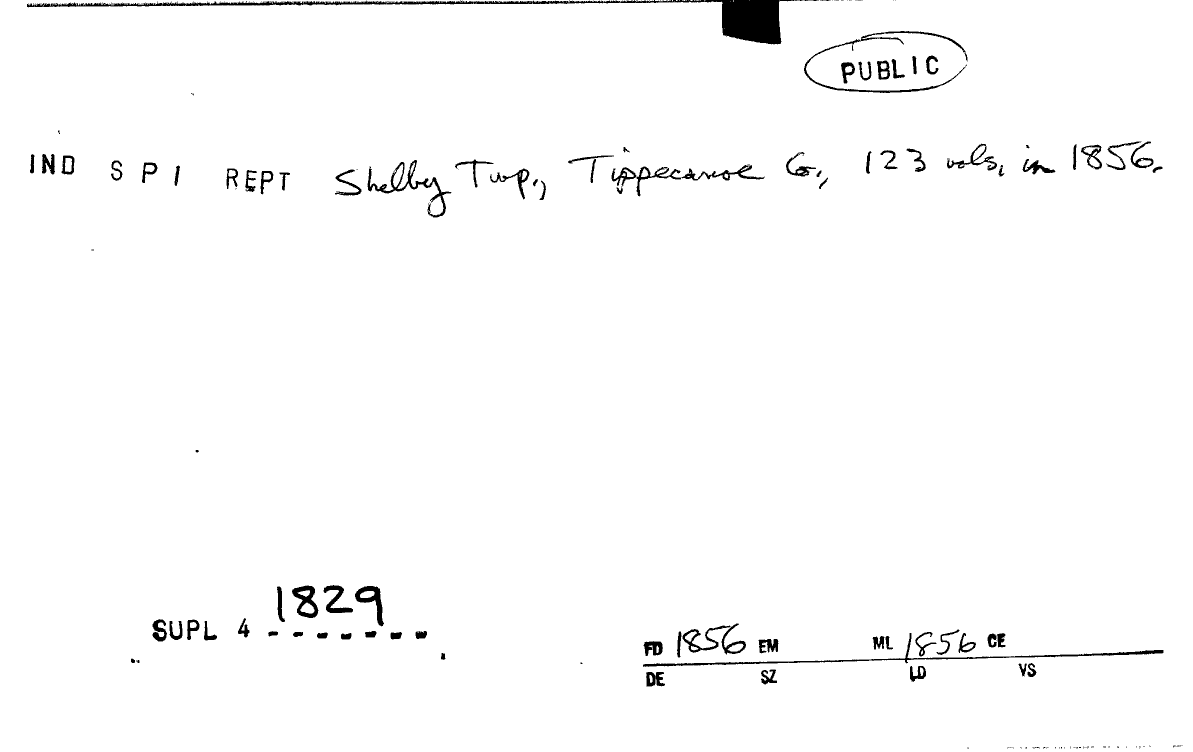 PUBLIC
IND SPI REPT Shelby Twp., Tippecanoe Co., 123 vols, in 1856.
1829
SUPL 4 -------
FD 1856 EM ML 1856 CE
DE SZ LD VS